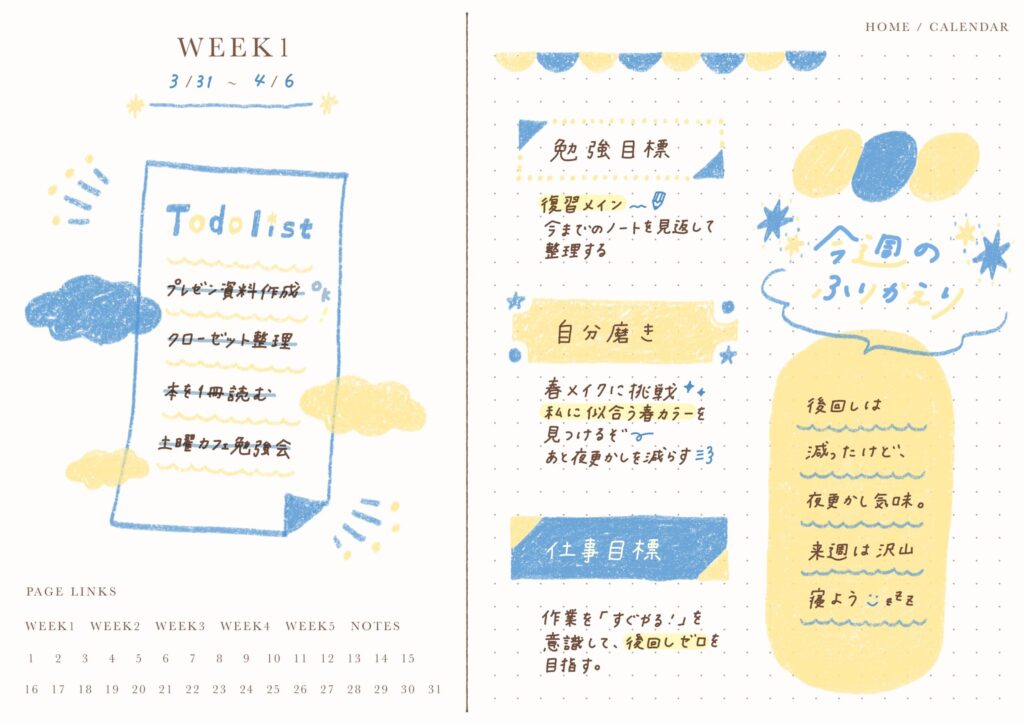 WEEK1
3/31 ~ 4/6
Todo list
プレゼン資料作成
OK!
クローゼット整理
本を1冊読む
土曜カフェ勉強会
PAGE LINKS
WEEK1 WEEK2 WEEK3 WEEK4 WEEK5 NOTES
1 2 3 4 5 6 7 8 9 10 11 12 13 14 15
16 17 18 19 20 21 22 23 24 25 26 27 28 29 30 31
HOME / CALENDAR
勉強目標
復習メイン
今までのノートを見返して
整理する
自分磨き
春メイクに挑戦
私に似合う春カラーを
見つけるぞ
あと夜更かしを減らす
仕事目標
作業を「すぐやる!」を
意識して、後回しゼロを
目指す。
今週の
ふりかえり
後回しは
減ったけど、
夜更かし気味。
来週は沢山
寝よう zzz